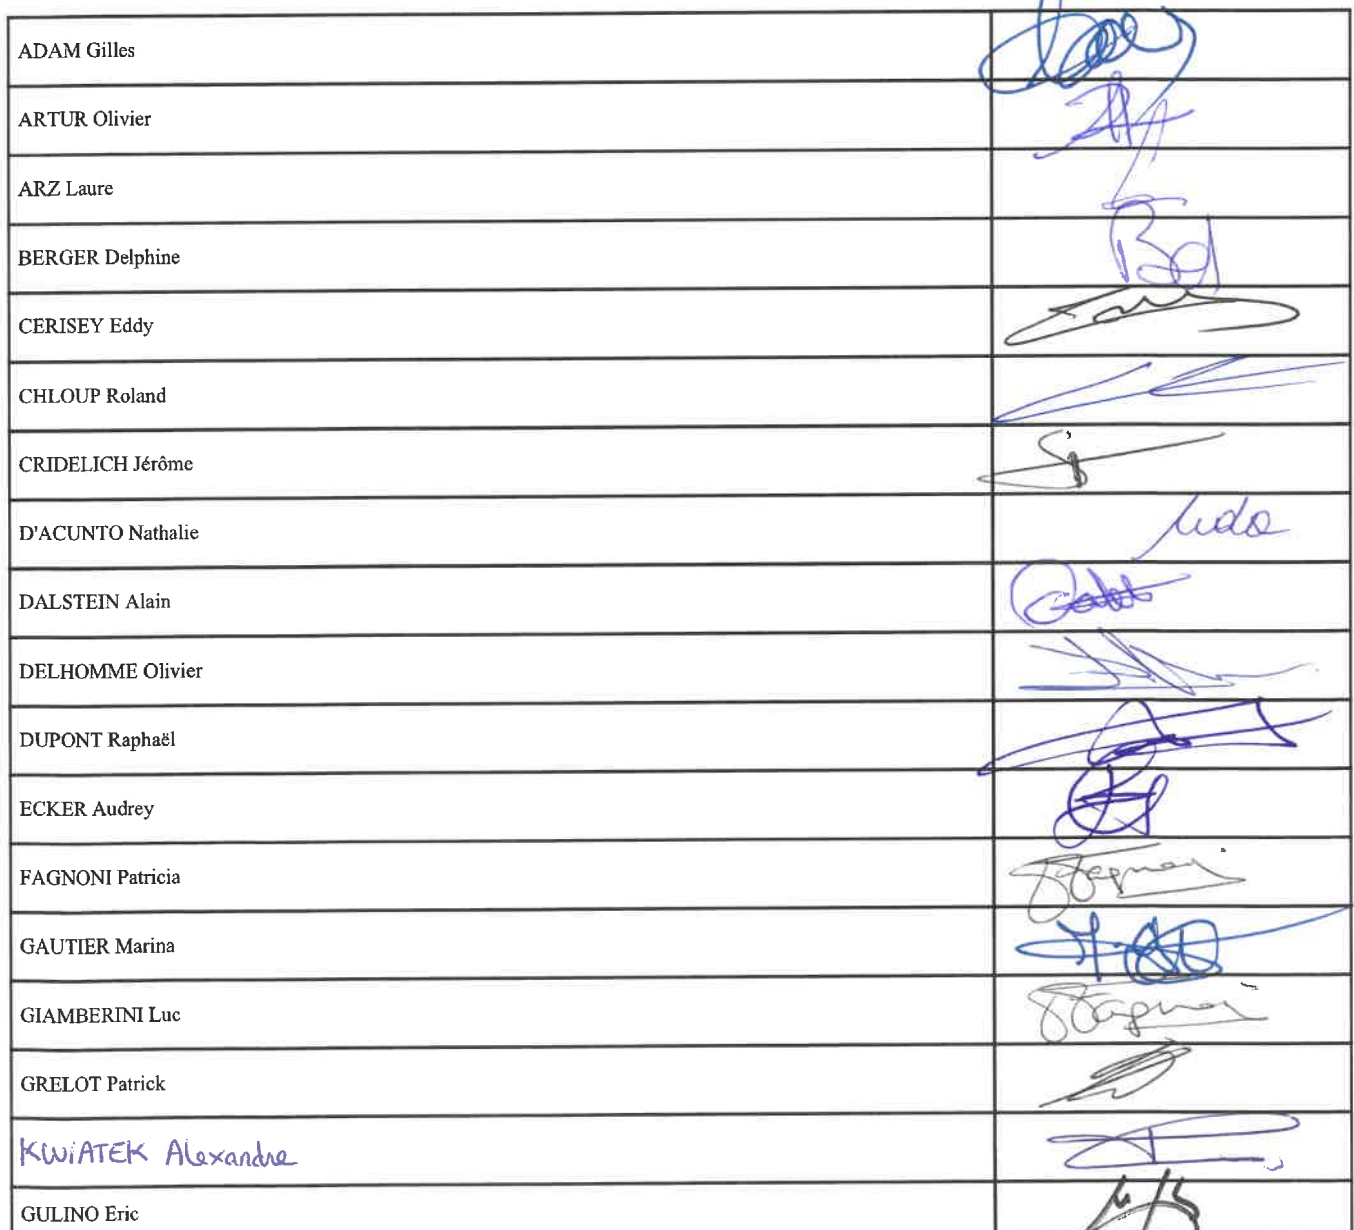 ADAM Gilles
ARTUR Olivier
ARZ Laure
BERGER Delphine
CERISEY Eddy
CHLOUP Roland
CRIDELICH Jérôme
D'ACUNTO Nathalie
DALSTEIN Alain
DELHOMME Olivier
DUPONT Raphaël
ECKER Audrey
FAGNONI Patricia
GAUTIER Marina
GIAMBERINI Luc
GRELOT Patrick
KWiATEK Alexandre
GULINO Eric